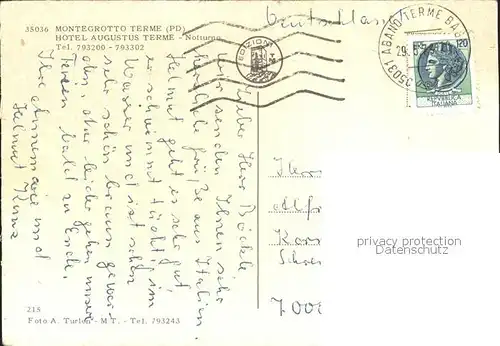 35036 MONTEGROTTO TERME (PD)
HOTEL AUGUSTUS TERME - Notturno
Tel. 793200 - 793302
Deutschland
35031 ABANO TERME
29.
120
REPUBBLICA
ITALIANA
EDIZIONI
Lieber Herr
wir senden Ihnen sehr
herzliche Grüße aus Italien
Helmut geht es sehr gut,
er schwimmt tücht. im
Wasser und ist schon
sehr schön braun gewor-
den, aber leider gehen unsere
Ferien bald zu Ende.
Ihre Annemarie und
Helmut
Herr
Alfr
Schw
7000
privacy protection
Datenschutz
215
Foto A. Turlon - M T. - Tel. 793243